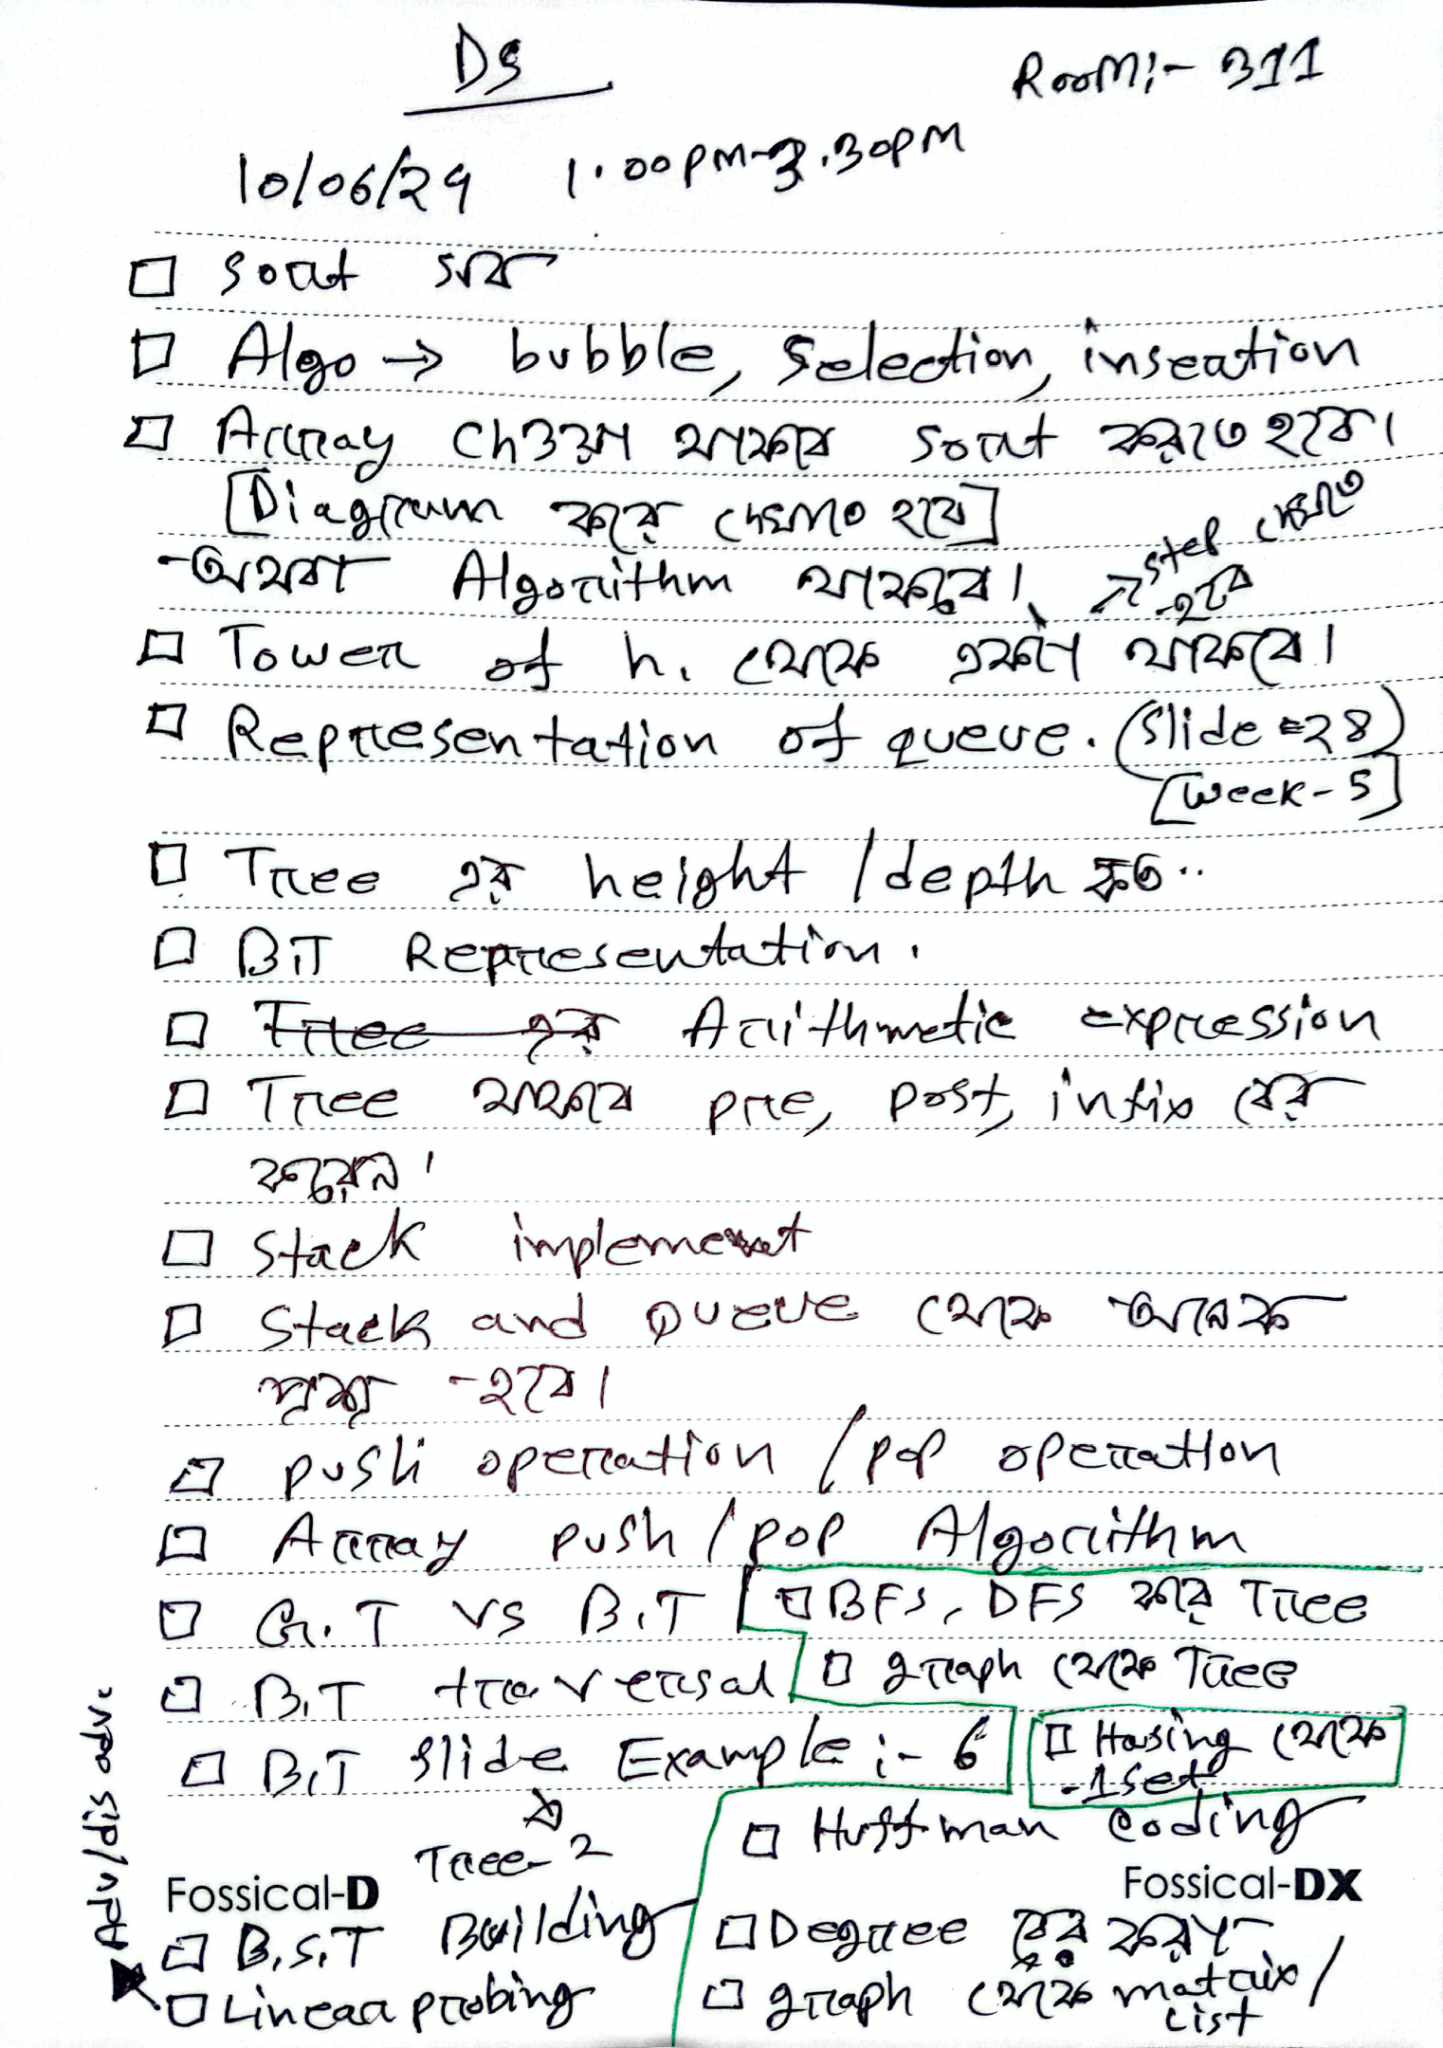 DS
Room:- 311
10/06/24 1.00pm-3.30pm
□ Sort সব
□ Algo → bubble, selection, insertion
□ Array দেওয়া থাকবে sort করতে হবে।
[Diagram করে দেখাতে হবে]
-অথবা Algorithm থাকবে। ↗ step দেখাতে হবে
□ Tower of h. থেকে একটা থাকবে।
□ Representation of queue. (slide =28)
[week-5]
□ Tree এর height / depth কত..
□ B.T Representation.
□ Tree এর Arithmetic expression
□ Tree থাকবে pre, post, infix বের
করেন।
□ Stack implement
□ Stack and Queue থেকে অনেক
প্রশ্ন -হবে।
□ push operation / pop operation
□ Array push / pop Algorithm
□ G.T vs B.T
□ BFS, DFS করে Tree
□ B.T traversal
□ graph থেকে Tree
□ B.T slide Example :- 6
Tree-2
□ Hasing থেকে
-1 set
□ Huffman coding
Fossical-D
Fossical-DX
□ B.S.T Building
□ Degree বের করা
□ Linear probing
□ graph থেকে matrix /
List
Adv/dis adv.